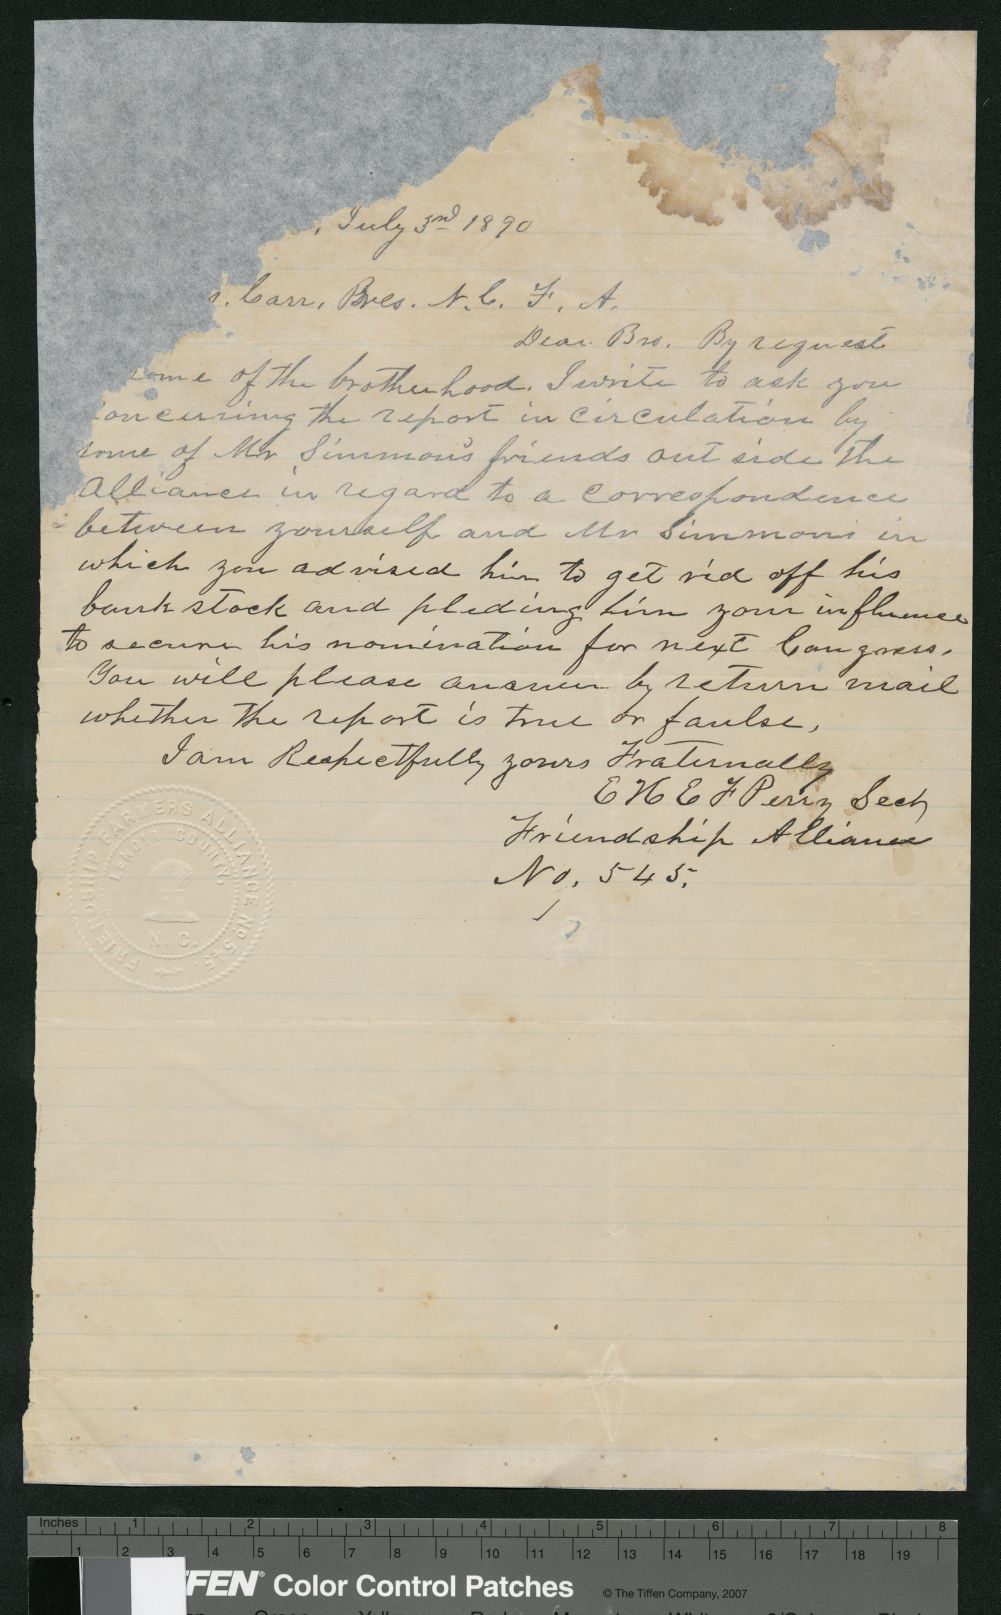 , July 3rd 1890
s. Carr, Pres. N.C. F. A.
Dear Bro. By request
some of the brotherhood. I write to ask you
concerning the report in circulation by
some of Mr Simmon's friends out side the
Alliance in regard to a correspondence
between yourself and Mr Simmons in
which you advised him to get rid off his
bank stock and pleding him your influence
to secure his nomination for next Congress.
You will please answer by return mail
whether the report is true or faulse,
I am Respectfully yours Fraternally
E H E F Perry Secty
Friendship Alliance
No. 545.
FRIENDSHIP FARMERS ALLIANCE No 545.
LENOIR COUNTY,
N. C.
Inches 1 2 3 4 5 6 7 8
1 2 3 4 5 6 7 8 9 10 11 12 13 14 15 16 17 18 19
FFEN® Color Control Patches © The Tiffen Company, 2007